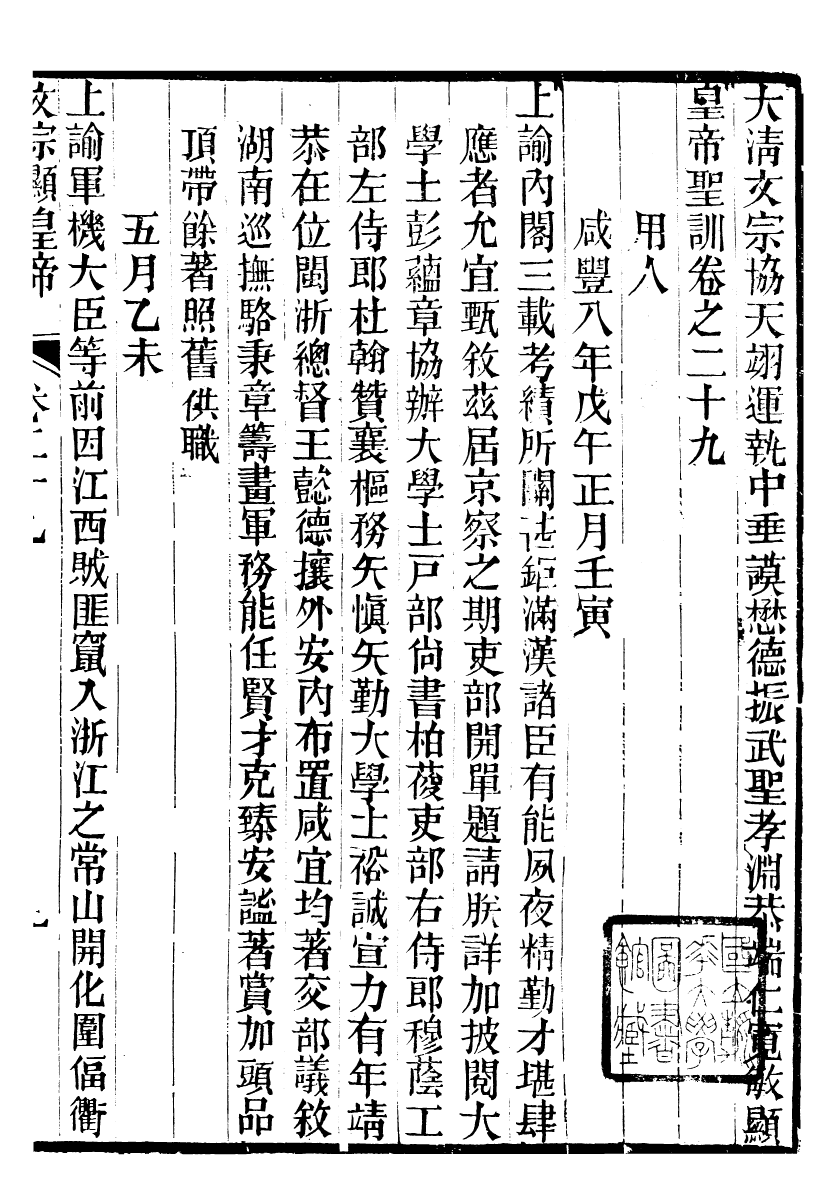 大淸文宗協天翊運執中垂謨懋德振武聖孝淵恭端仁寬敏顯
皇帝聖訓卷之二十九
用人
咸豐八年戊午正月壬寅
上諭內閣三載考績所關甚鉅滿漢諸臣有能夙夜精勤才堪肆
應者允宜甄敘茲居京察之期吏部開單題請朕詳加披閱大
學士彭蘊章協辦大學士戸部尙書柏葰吏部右侍郎穆蔭工
部左侍郎杜翰贊襄樞務矢愼矢勤大學士裕誠宣力有年靖
恭在位閩浙總督王懿德攘外安內布置咸宜均著交部議敘
湖南巡撫駱秉章籌畫軍務能任賢才克臻安謐著賞加頭品
頂帶餘著照舊供職
五月乙未
上諭軍機大臣等前因江西賊匪竄入浙江之常山開化圍偪衢
文宗顯皇帝 卷二十九 一
國立清華大學圖書館藏